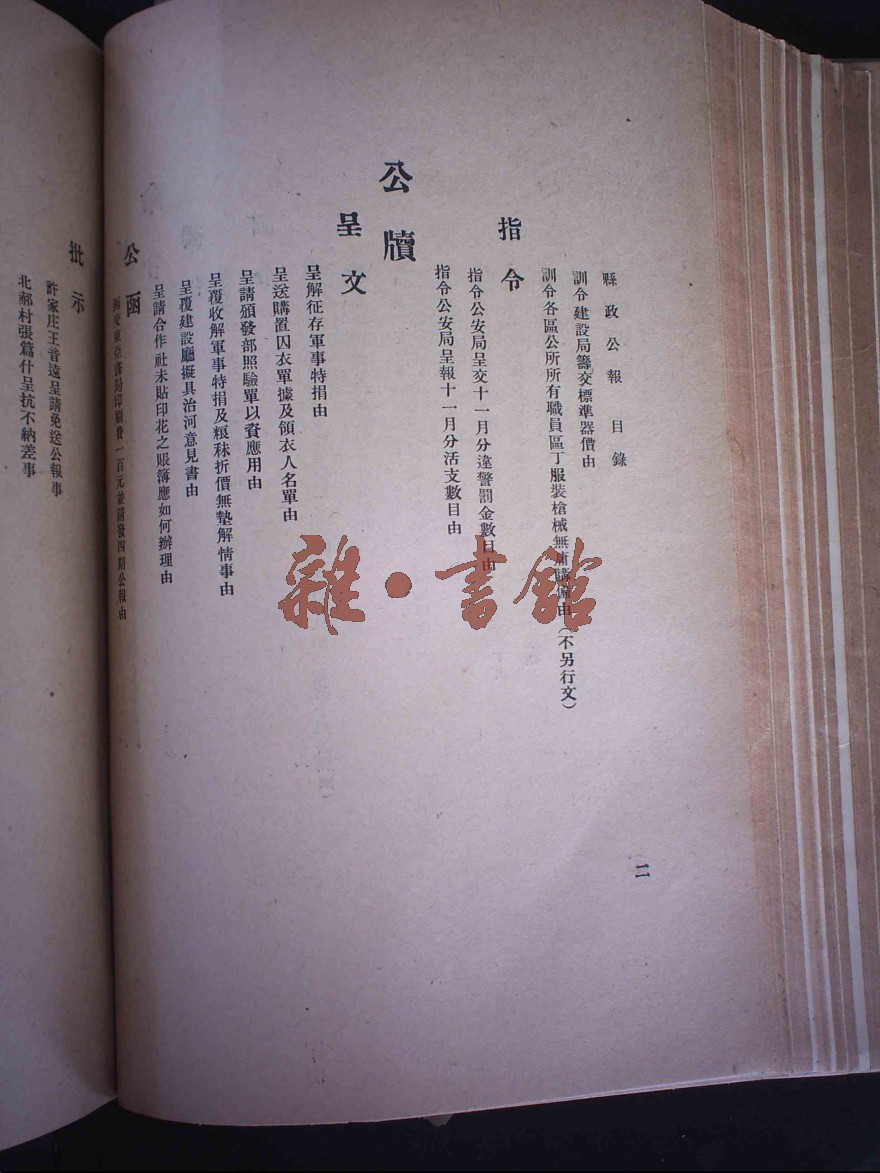 縣政公報 目錄
訓令建設局籌交標準器價由
訓令各區公所所有職員區丁服裝槍械無庸購備由(不另行文)
指令
指令公安局呈交十一月分違警罰金數目由
指令公安局呈報十一月分活支數目由
公牘
呈文
呈解征存軍事特捐由
呈送購置囚衣單據及領衣人名單由
呈請頒發部照驗單以資應用由
呈覆收解軍事特捐及粮秣折價無墊解情事由
呈覆建設廳擬具治河意見書由
呈請合作社未貼印花之賬簿應如何辦理由
公函
函交東亞書局印刷費一百元並請發四期公報由
二
批示
許家庄王音遠呈請免送公報事
北郝村張篇什呈抗不納差事
雜·書館